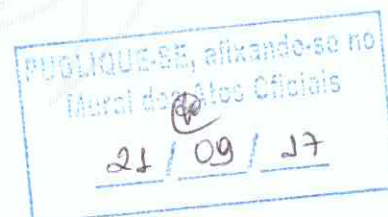 PUBLIQUE-SE, afixando-se no
Mural dos Atos Oficiais
21 / 09 / 17